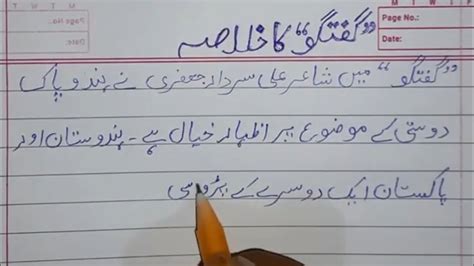 M T W T
Page No.:
Date:
M T W T
"گفتگو" کا خلاصہ
"گفتگو" میں شاعر علی سردار جعفری نے ہند و پاک
دوستی کے موضوع پر اظہار خیال ہے۔ ہندوستان اور
پاکستان ایک دوسرے کے پڑوسی